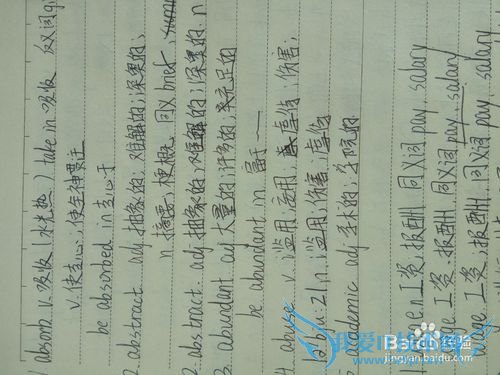 absorb v. 吸收(水光热) take in 吸收 反义词g
v. 使专心;使全神贯注
be absorbed in 专心于
2. abstract. adj 抽象的;难解的;深奥的;
n 摘要;梗概. 同义 brief,
2. abstract. adj 抽象的;难解的;深奥的. n
3. abundant adj 大量的;许多的;充足的
be abundant in 富于
4. abuse v. 滥用;虐待;伤害;
n. 滥用;伤害;虐待
academic adj 学术的;学院的
n 工资;报酬 同义词 pay. salary
n 工资. 报酬 同义词 pay. salary
工资;报酬 同义词 pay. salary
Baidu 经验
jingyan.baidu.com